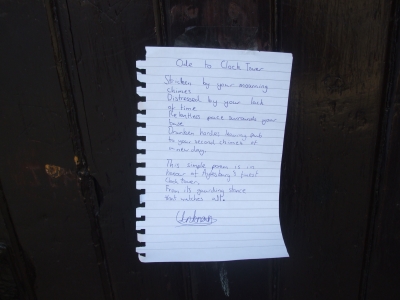 Ode to Clock Tower
Stricken by your
chimes
Distressed by your lack
of time
Relentless peace surrounds your
base
Drunken hordes
to your second chimes of
a new day.
This simple poem is in
honour of Aylesbury's finest
Clock Tower.
From its guarding stance
that watches all.
Unknown